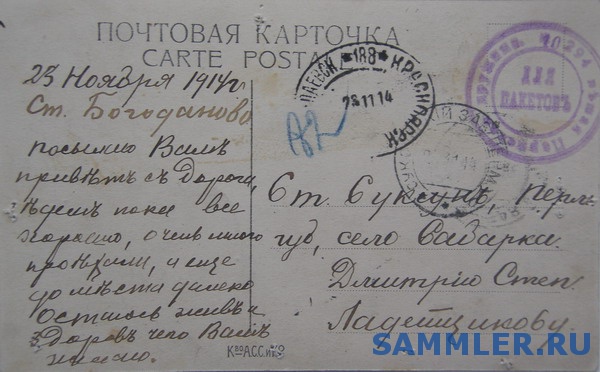 ПОЧТОВАЯ КАРТОЧКА
CARTE POSTA
23 Ноября 1914 г
Ст. Богоданово
посылаю Вамъ
привѣтъ съ дороги,
ѣдемъ пока все
хорошо, очень много
проѣхали, а еще
до мѣста далеко
остаюсь живъ и
здоровъ чего Вамъ
желаю.
188 КРАСНОЯРСК
23 11 14
ДЛЯ
ПАКЕТОВЪ
Ст. Суксунъ Перм.
губ, село Сабарка.
Дмитрію Степ.
Ладейщикову.
SAMMLER.RU